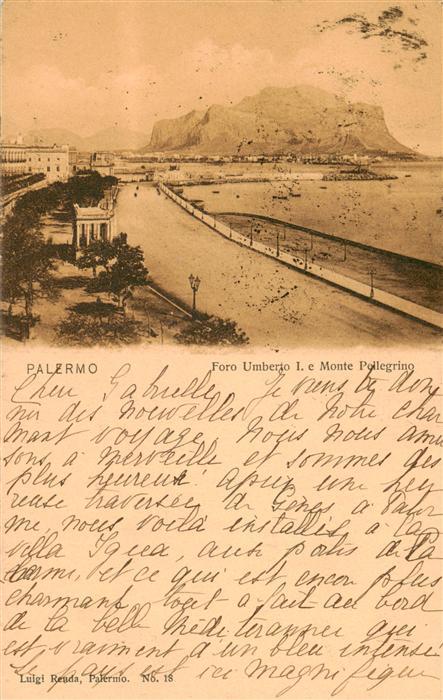 PALERMO
Foro Umberto I. e Monte Pellegrino
Cher Gabrielle Je viens te don
ner des nouvelles de notre char
mant voyage. Nous nous amu
sons à merveille et sommes des
plus heureux. après une heu
reuse traversée de Gênes à Paler
me, nous voilà installés à la
villa Igiea, aussi palis de la
et ce qui est encor plus
charmant tout à fait au bord
de la belle Méditerranée qui
est vraiment d'un bleu intense
Le pays est ici magnifique
Luigi Renda, Palermo. No. 18